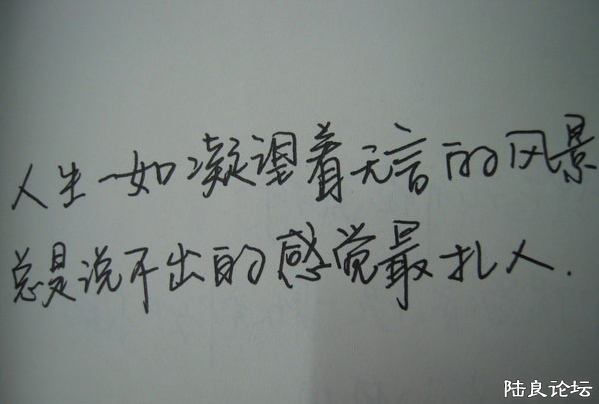 人生一如凝望着无言的风景
总是说不出的感觉最扎人.
陆良论坛